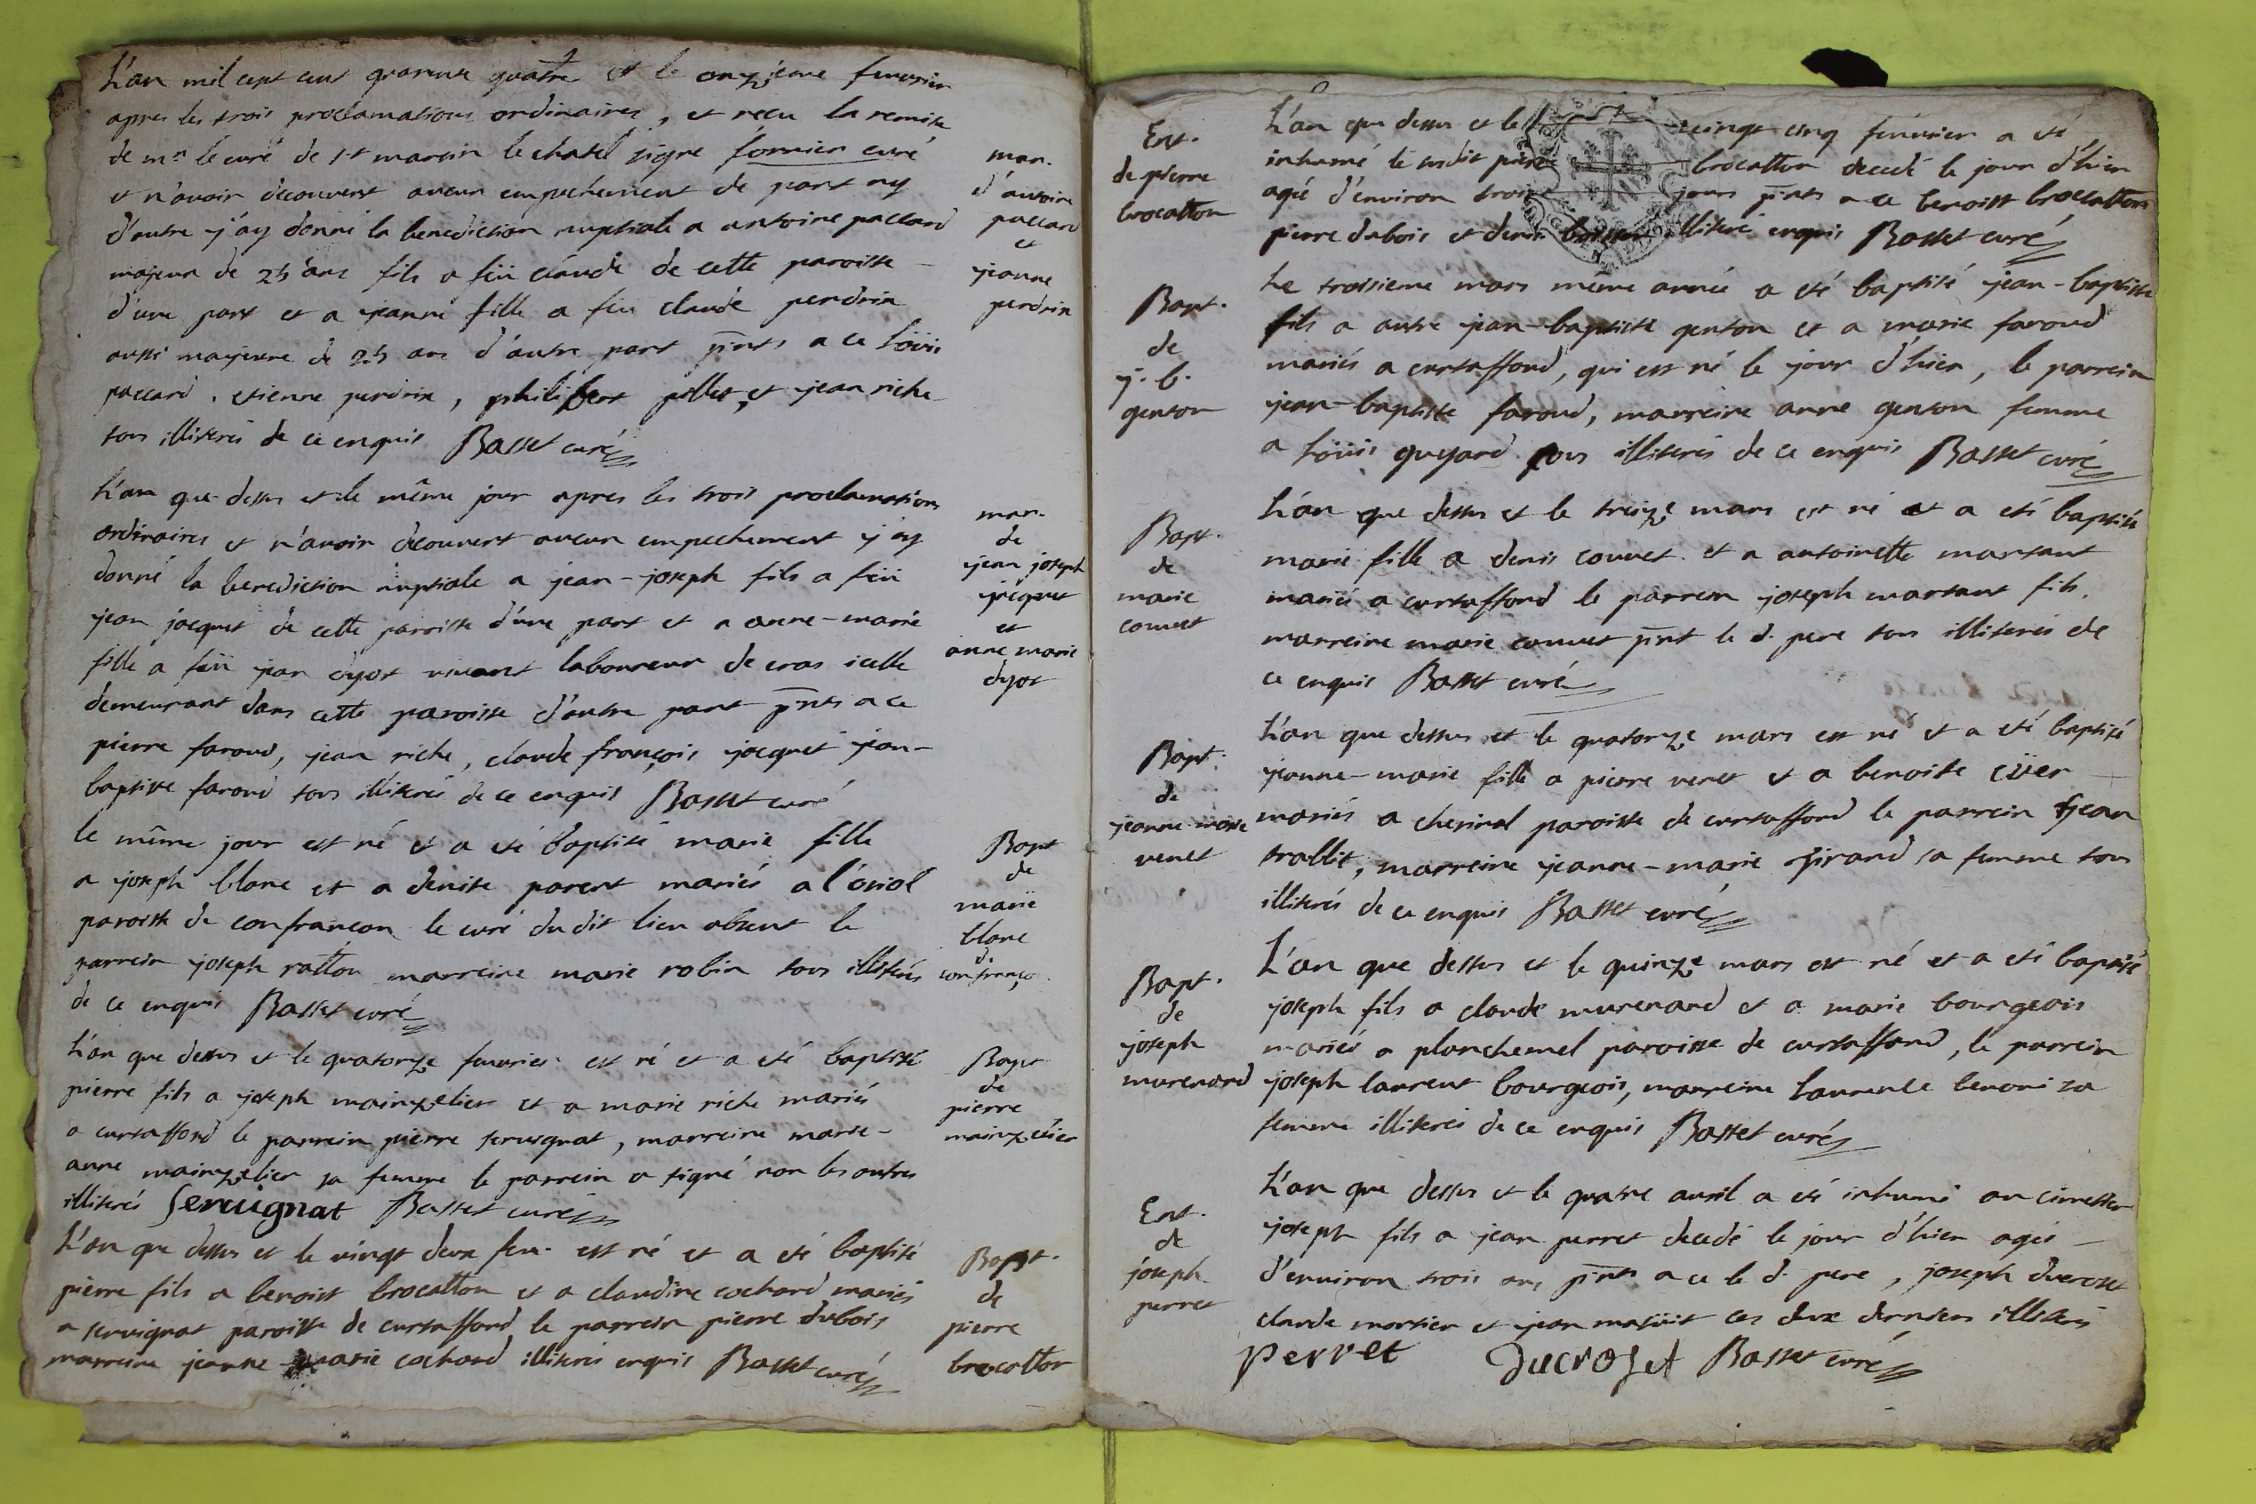 L'an mil sept cent quarente quatre et le onzieme feuurier
apres les trois proclamations ordinaires, et recu la remise
de mr. le curé de st martin le chatel signé fornier curé
et n'avoir decouvert aucun empechement de part ny
d'autre j'ay donné la benediction nuptiale a antoine paccard
majeur de 25 ans fils a feü claude de cette paroisse
d'une part et a jeanne fille a feu claude perdrix
aussi majeure de 25 ans d'autre part pnts a ce loüis
paccard, etienne perdrix, philibert pollet, et jean riche
tous illiterés de ce enquis Basset curé
mar.
d'antoine
paccard
et
jeanne
perdrix
L'an que dessus et le même jour apres les trois proclamations
ordinaires et n'avoir decouvert aucun empechement j'ay
donné la benediction nuptiale a jean-joseph fils a feü
jean jacquet de cette paroisse d'une part et a anne-marie
fille a feü jean dyot vivant laboureur de cras icelle
demeurant dans cette paroisse d'autre part pnts a ce
pierre faroud, jean riche, claude françois jacquet jean-
baptiste faroud tous illiterés de ce enquis Basset curé
mar.
de
jean joseph
jacquet
et
anne marie
dyot
le même jour est né et a eté baptisé marie fille
a joseph blanc et a denise parent mariés a l'oriol
paroisse de confrancon le curé du dit lieu absent le
parrein joseph ratton marreine marie robin tous illiterés
de ce enquis Basset curé
Bapt
de
marie
blanc
d.
confranço.
L'an que dessus et le quatorze feuurier est né et a eté baptisé
pierre fils a joseph mainzelier et a marie riche mariés
a curtaffond le parrein pierre seruignat, marreine marie-
anne mainzelier sa femme le parrein a signé non les autres
illiterés Seruignat Basset curé
Bapt
de
pierre
mainzelier
L'an que dessus et le vingt deux feu. est né et a eté baptisé
pierre fils a benoist brocatton et a claudine cochard mariés
a seruignat paroisse de curtaffond le parrein pierre dubois
marreine jeanne-marie cochard illiterés enquis Basset curé
Bapt.
de
pierre
brocatton
Ent.
de pierre
brocatton
L'an que dessus et le vingt cinq feuurier a eté
inhumé le susdit pierre brocatton decedé le jour d'hier
agé d'environ trois jours pnts a ce benoist brocatton
pierre dubois et denis illiteré enquis Basset curé
Bapt.
de
j. b.
genton
Le troisieme mars même année a eté baptisé jean-baptiste
fils a autre jean-baptiste genton et a marie faroud
mariés a curtaffond, qui est né le jour d'hier, le parrein
jean-baptiste faroud, marreine anne genton femme
a loüis guyard tous illiterés de ce enquis Basset curé
Bapt.
de
marie
couuet
L'an que dessus et le treize mars est né et a eté baptisé
marie fille a denis couuet et a antoinette martant
mariés a curtaffond le parrein joseph martant fils.
marreine marie couuet pnt le d. pere tous illiterés de
ce enquis Basset curé
Bapt.
de
jeanne-marie
venet
L'an que dessus et le quatorze mars est né et a eté baptisé
jeanne-marie fille a pierre venet et a benoite
mariés a cherinal paroisse de curtaffond le parrein jean
trablit, marreine jeanne-marie girand sa femme tous
illiterés de ce enquis Basset curé
Bapt.
de
joseph
murenard
L'an que dessus et le quinze mars est né et a eté baptisé
joseph fils a claude murenard et a marie bourgeois
mariés a planchemel paroisse de curtaffond, le parrein
joseph laurent bourgeois, marreine laurence benoni sa
femme illiterés de ce enquis Basset curé
Ent.
de
joseph
perret
L'an que dessus et le quatre auril a eté inhumé au cimettier
joseph fils a jean perret decedé le jour d'hier agés
d'environ trois ans pnts a ce le d. pere, joseph ducroset
claude mortier et jean ces deux derniers illiterés
perret ducroset Basset curé